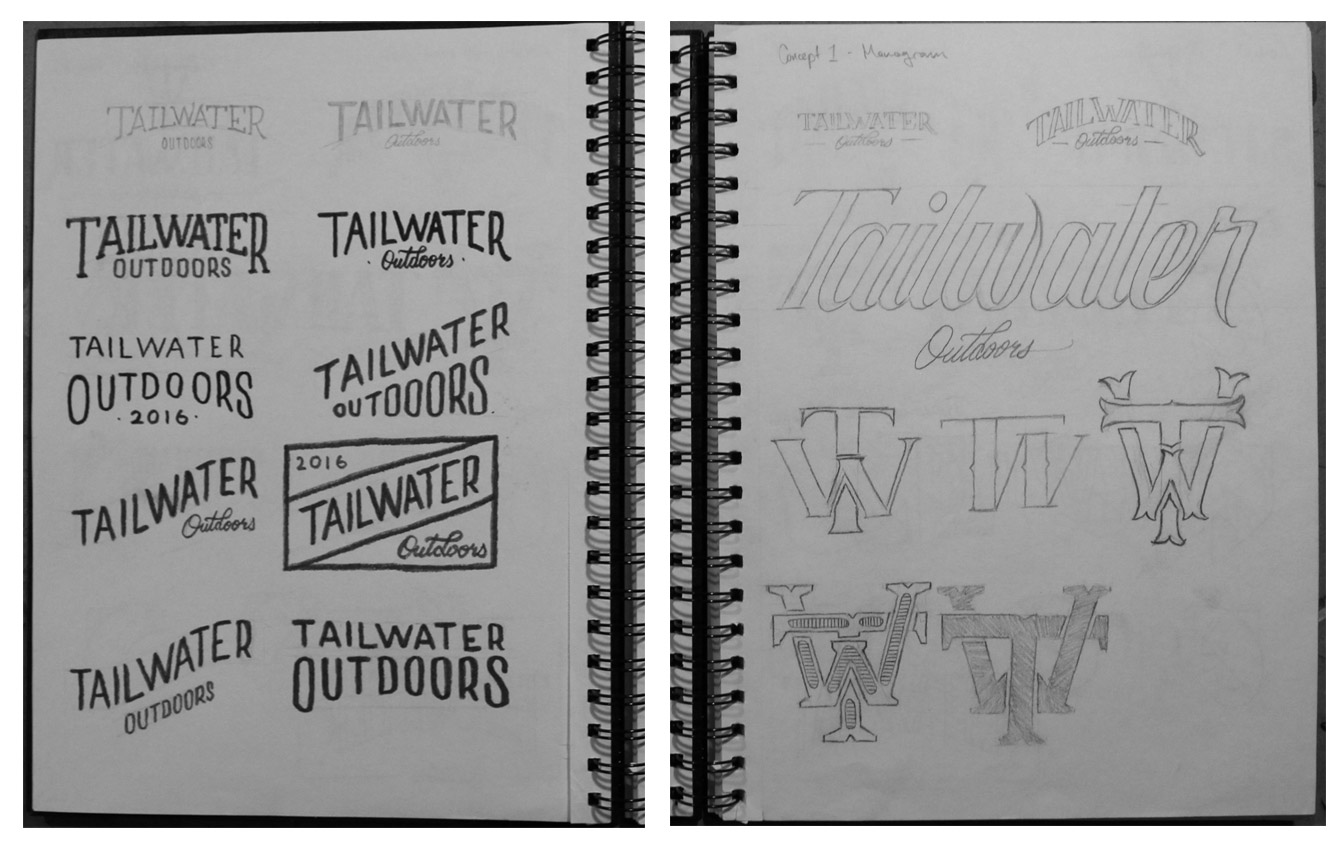 TAILWATER
OUTDOORS
TAILWATER
Outdoors
TAILWATER
OUTDOORS
TAILWATER
· Outdoors ·
TAILWATER
OUTDOORS
· 2016 ·
TAILWATER
OUTDOORS
TAILWATER
Outdoors
2016
TAILWATER
Outdoors
TAILWATER
OUTDOORS
TAILWATER
OUTDOORS
Concept 1 - Monogram
TAILWATER
Outdoors
TAILWATER
Outdoors
Tailwater
Outdoors
TW
TW
TW
TW
TW